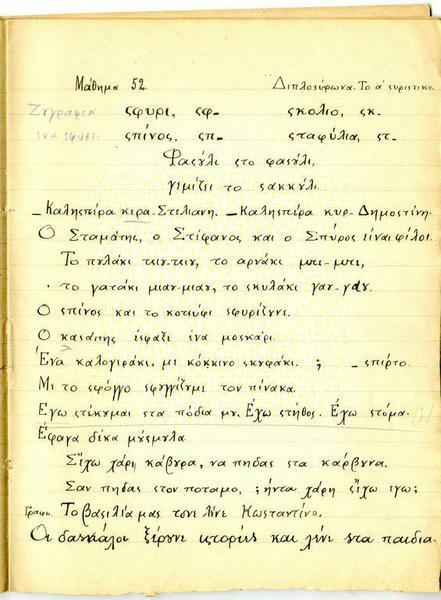 Μάθημα 52. Διπλοσύφωνα. Το α' συριστικο.
Ζυγραφιά ςφυρι, ςφ- ςκολιο, ςκ-
ενα ςφυρι. ςπίνος, ςπ- ςταφύλια, ςτ-
Φαςύλι ςτο φαςύλι,
γεμίζει το ςακκύλι.
_Καλησπέρα κερα-Στελιανη. _Καλησπέρα κυρ-Δημοςτένη.
Ο Σταμάτης, ο Στέφανος και ο Σπύρος είναι φίλοι.
Το πυλάκι τσιυ-τσιυ, το αρνάκι μπε-μπε,
το γατάκι μιαυ-μιαυ, το ςκυλάκι γαυ-γαυ.
Ο ςπίνος και το κοτσύφι ςφυρίζυνε.
Ο καςάπης έςφαξε ένα μοςκάρι.
Ένα καλογιράκι, με κόκκινο ςκυφάκι. ; _ςπίρτο.
Με το ςφόγγο ςφυγγίζυμε τον πίνακα.
Εγω ςτέκυμαι ςτα πόδια μυ. Εχω ςτήθος. Εχω ςτόμα.
Εφαγα δέκα μύςμυλα
Σ'έχω χάρη κάβυρα, να πηδας ςτα κάρβυνα.
Σαν πηδας ςτον ποταμο, ; ήντα χάρη ς'έχω εγω;
Γραφη. Το βαςιλιά μας τονε λένε Κωςταντίνο.
Οι δαςκάλοι ξέρυνε ιςτορίες και λένε ςτα παιδια.